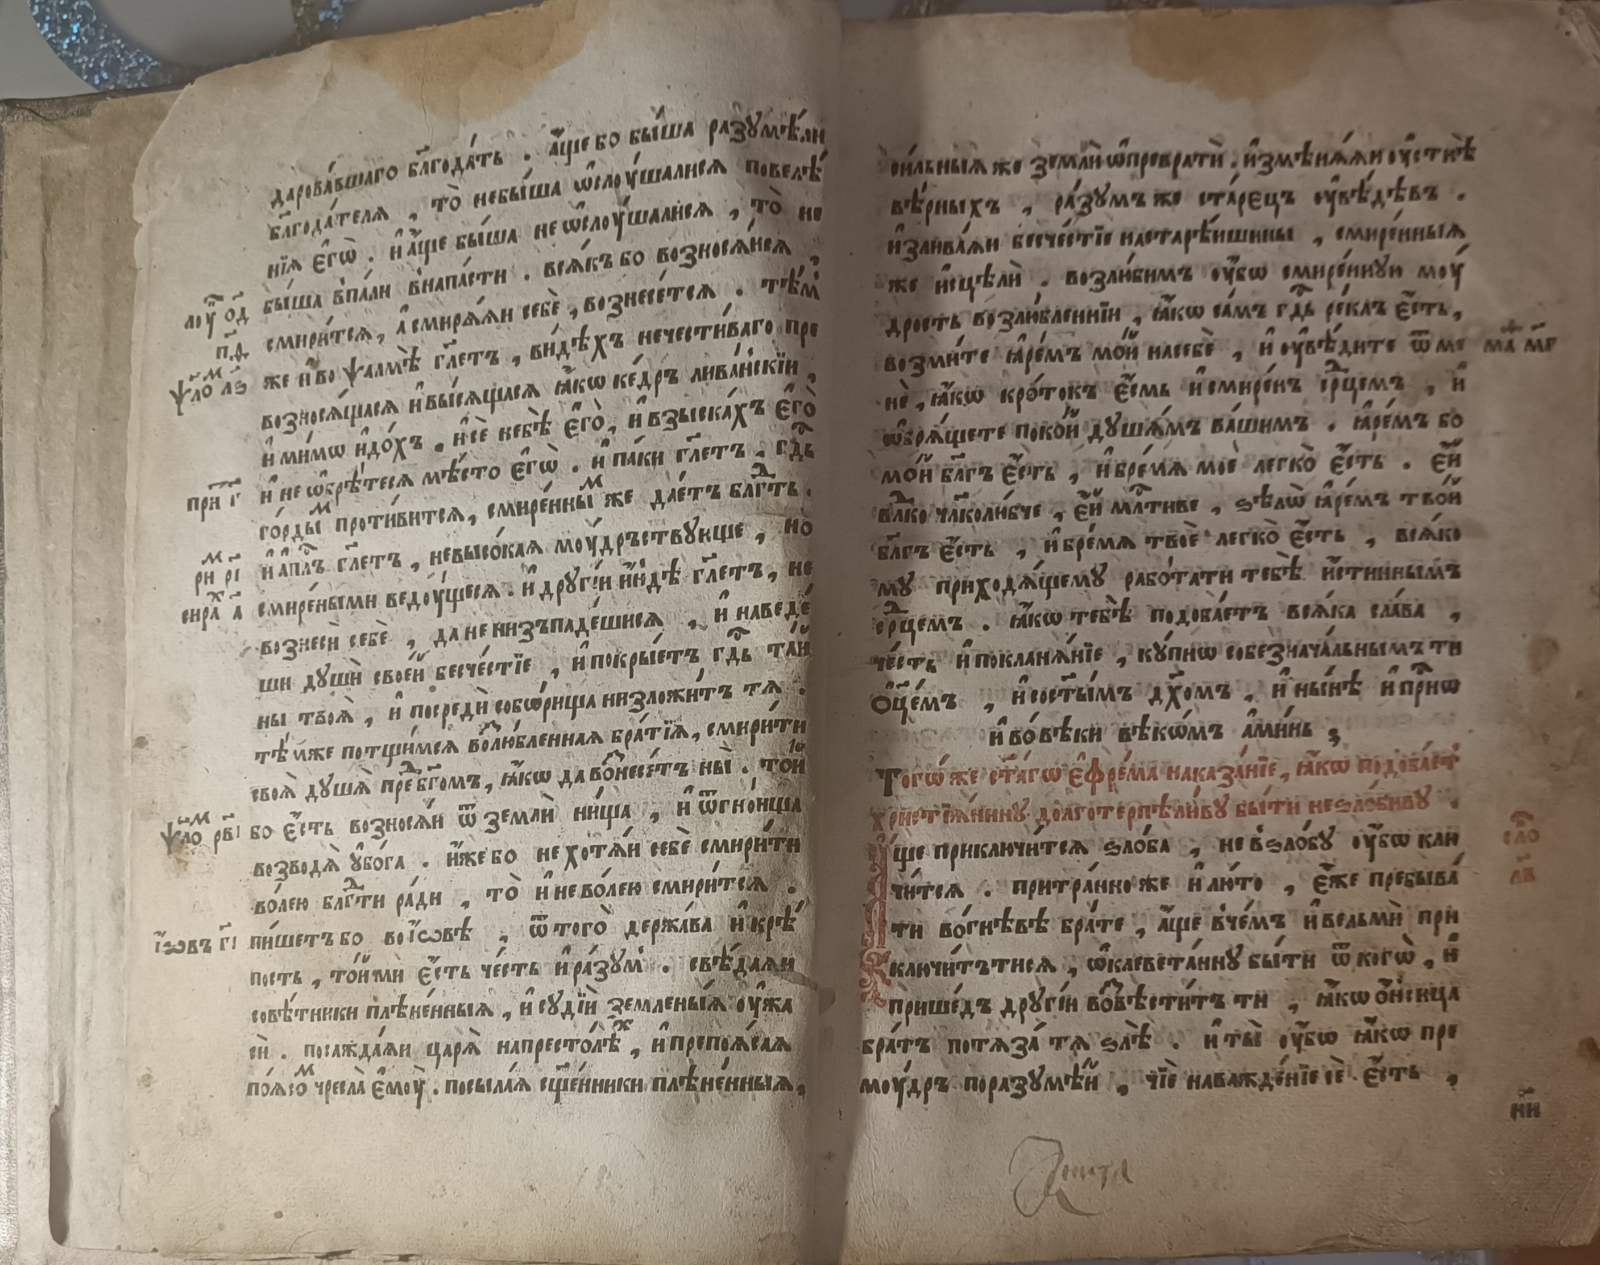 дарова́вшаго бл҃года́ть . а҆́ще бо бы́ша разꙋмѣ́ли
бл҃года́телѧ , то̀ небы́ша ѡ҆слоу́шалисѧ повелѣ́
нїѧ є҆гѡ̀ . и҆ а҆́ще бы́ша не ѡ҆слоу́шалисѧ , то̀ не
бы́ша впа́ли внапа́сти . всѧ́къ бо возносѧ́исѧ ,
смири́тсѧ , а҆ смирѧ́ѧи себѐ , вознесе́тсѧ . тѣ́м
же и҆ во ѱалмѣ̀ гл҃етъ , ви́дѣхъ нечести́ваго пре
возносѧ́щасѧ и҆ высѧ́щасѧ ꙗ҆́кѡ ке́дръ лива́нскїи ,
и҆ ми́мѡ и҆до́хъ . и҆ сѐ небѣ̀ є҆го̀ , и҆ взыска́хъ є҆го̀
и҆ не ѡ҆брѣ́тесѧ мѣ́сто є҆гѡ̀ . и҆ па́ки гл҃етъ . гд҇ь
го́рдым проти́витсѧ , смире́нным же дае́тъ благ҇ть .
и҆ а҆пл҇ъ гл҃етъ , невысо́каѧ моу́дръствꙋюще , но
смире́ными ведоу́щесѧ . и҆ дрꙋгі́и и҆́ндѣ гл҃етъ , не
вознесѝ себѐ , да не низъпаде́шисѧ , и҆ наведе́
ши дꙋшѝ свое́й бесче́стїе , и҆ покры́етъ гд҇ь та́й
ны твоѧ̀ , и҆ посредѝ собѡ́рища низложи́тъ тѧ .
тѣ́мже потщи́мсѧ возлю́бленнаѧ бра́тїѧ , смири́ти
своѧ̀ дꙋшѧ̀ пред бг҃ом , ꙗ҆́кѡ да вознесе́тъ ны . то́й
бо є҆́сть возносѧ́и ѿ землѝ ни́ща , и҆ ѿ гно́ища
возводѧ̀ ᲂу҆бо́га . и҆́же бо не хотѧ́и себѐ смири́ти
во́лею благ҇ти ра́ди , то̀ и҆ не во́лею смири́тсѧ .
пи́шетъ бо во і҆́ѡвѣ , ѿ того̀ держа́ва и҆ крѣ́
пость , то́йми є҆́сть че́сть и҆ ра́зꙋм . свѣ́даѧи
совѣ́тники плѣне́нныѧ , и҆ сꙋдїѝ земле́ныѧ оу҆жа
сѝ . посажда́ѧи царѧ̀ напресто́лѣх , и҆ препоѧ́саѧ
по́ѧсом чресла̀ є҆моу̀ . посыла́ѧ сщ҃е́нники плѣне́нныѧ ,
лоу҆ ѻд
п҃д
ѱало л҃ѕ
при г҃
ри р҃і
сира а҃
ѱало рв҃і
і҆ѡвъ г҃і
си́льныѧ же землѝ ѿпревратѝ . и҆змѣнѧ́ѧи оу҆стнѣ̀
вѣ́рныхъ , ра́зꙋмъ же ста́рєцъ оу҆вѣ́дѣвъ .
и҆злива́ѧи бесче́стїе настарѣ́ишины , смире́нныѧ
же и҆сцѣлѝ . возлю́бимъ оу҆́бѡ смире́ннꙋю моу́
дрость возлю́бленнїи , ꙗ҆́кѡ са́мъ гд҇ь ре́клъ є҆́сть ,
возми́те ꙗ҆ре́мъ мо́й насебѐ , и҆ оу҆вѣ́дите ѿ ме
нѐ , ꙗ҆́кѡ кро́токъ є҆́смь и҆ смире́нъ ср҇цемъ , и҆
ѡ҆брѧ́щете поко́й дꙋша́мъ ва́шимъ . ꙗ҆ре́мъ бо
мо́й бл҃гъ є҆́сть , и҆ бре́мѧ моѐ легко̀ є҆́сть . є҆́й
вл҇ко чл҃колю́бче , є҆́й мл҇тиве , ѕѣлѡ̀ ꙗ҆ре́мъ тво́й
бл҃гъ є҆́сть , и҆ бре́мѧ твоѐ легко̀ є҆́сть , всѧ́ко
мꙋ приходѧ́щемꙋ рабо́тати тебѣ̀ и҆́стиннымъ
ср҇цемъ . ꙗ҆́кѡ тебѣ̀ подоба́етъ всѧ́ка сла́ва ,
че́сть и҆ покланѧ́нїе , кꙋ́пнѡ собезнача́льнымъ ти
ѻ҆ц҃е́мъ , и҆ сост҃ы́мъ дх҃омъ , и҆ ны́нѣ и҆ при҇нѡ
и҆ во́ вѣки вѣкѡ́мъ а҆ми́нь ;
Тогѡ́ же ст҃а́гѡ є҆фре́ма наказа́нїе , ꙗ҆́кѡ подоба́етъ
христїѧ́нинꙋ долготерпѣли́вꙋ бы́ти неѕло́бивꙋ .
А҆́ще приключи́тсѧ ѕло́ба , не в̾ѕло́бꙋ оу҆́бѡ клю
чи́тсѧ . притра́нно же и҆ лю́то , є҆́же пребыва́
ти во́гнѣвѣ бра́те , а҆́ще вче́мъ и҆ вельмѝ при
ключи́тътисѧ , ѡ҆клевета́ннꙋ бы́ти ѿ когѡ̀ , и҆
прише́дъ дрꙋгі́и возвѣсти́тъ ти , ꙗ҆́кѡ ѻ҆́нсица
бра́тъ потѧза́ тѧ ѕлѣ̀ . и҆ ты̀ оу҆́бѡ ꙗ҆́кѡ пре
моу́дръ поразꙋмѣ́й , чїѐ наважде́нїе сѐ є҆́сть ,
ма м҃г
сло
л҃в
н҃и